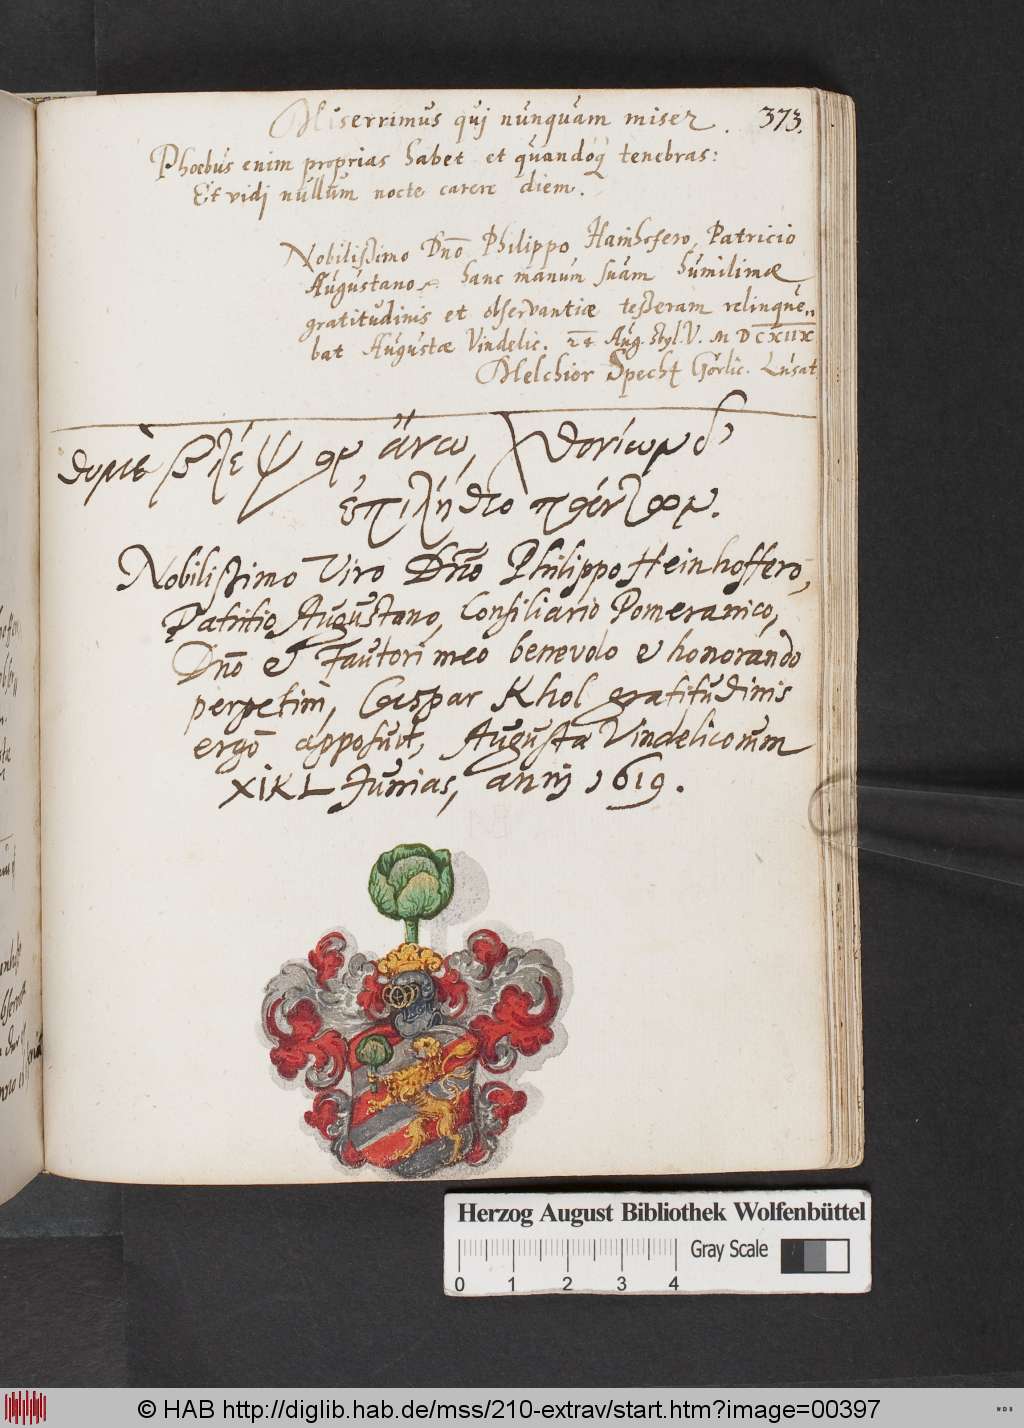 Miserrimus qui nunquam miser. 373.
Phoebus enim proprias habet et quandoq tenebras:
Et vidi nullum nocte carere diem.
Nobilissimo Dno Philippo Hainhofero, Patricio
Augustano hanc manum suam humilimæ
gratitudinis et observantiæ tesseram relinque„
bat Augustæ Vindelic. 24 Aug. styl. V. MDCXIIX
Melchior Specht Görlic. Lusat
βλέψον ἄνω, χθονίων δ'
ἐπιλήθεο πάντων.
Nobilissimo Viro Dño Philippo Heinhoffero,
Patritio Augustano, Consiliario Pomeranico,
Dño et Fautori meo benevolo et honorando
perpetim, Caspar Khol gratitudinis
ergò apposuit, Augusta Vindelicorum
XI KL Junias, anni 1619.
Herzog August Bibliothek Wolfenbüttel
Gray Scale
0 1 2 3 4
© HAB http://diglib.hab.de/mss/210-extrav/start.htm?image=00397